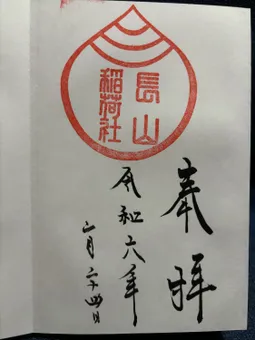 奉拝
長山
稲荷社
令和六年
二月二十四日